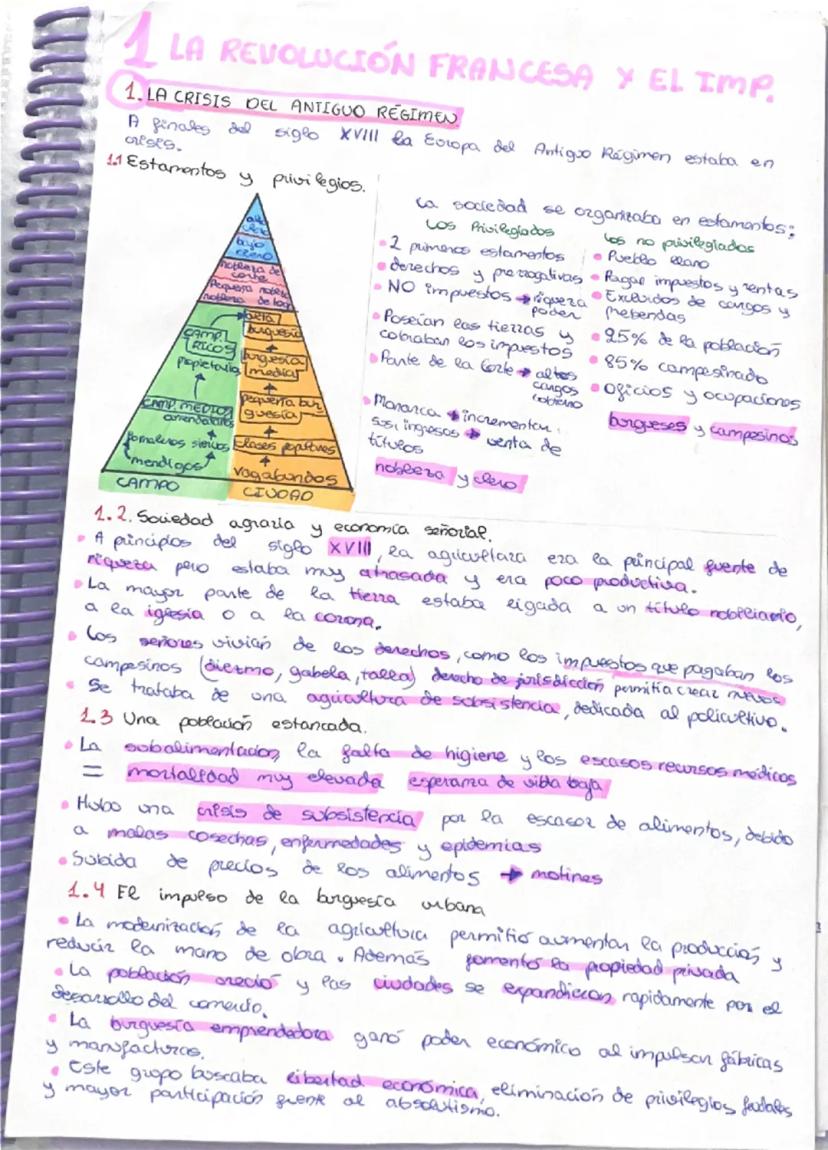 1 LA REVOLUCIÓN FRANCESA Y EL IMP.
1. LA CRISIS DEL ANTIGUO RÉGIMEN.
A finales del siglo XVIII la Europa del Antiguo Régimen estaba en
crisis.
1.1 Estamentos y privilegios.
alto
clero
bajo
clero
nobleza de
corte
Pequeña nobleza
nobleza de toga
CAMP.
RICOS
propietarios
CAMP. MEDIOS
arrendatarios
jornaleros siervos
mendigos
CAMPO
alta
burguesía
burguesía
media
pequeña bur
guesía
clases populares
vagabundos
CIUDAD
La sociedad se organizaba en estamentos:
Los Privilegiados
• 2 primeros estamentos
• derechos y prerrogativas
• NO impuestos → riqueza
poder
• Poseían las tierras y
cobraban los impuestos
• Parte de la Corte → altos
cargos
• Monarca → incrementar
sus ingresos → venta de
títulos
nobleza y clero
los no privilegiados
• Pueblo llano
• Pagar impuestos y rentas
• Excluidos de cargos y
prebendas
• 95% de la población
• 85% campesinado
• Oficios y ocupaciones
burgueses y campesinos
1.2. Sociedad agraria y economía señorial.
• A principios del siglo XVIII, la agricultura era la principal fuente de
riqueza pero estaba muy atrasada y era poco productiva.
• La mayor parte de la tierra estaba ligada a un título nobiliario,
a la iglesia o a la corona.
• Los señores vivían de los derechos, como los impuestos que pagaban los
campesinos (diezmo, gabela, talla) derecho de jurisdicción permitía crear nuevos
• Se trataba de una agricultura de subsistencia, dedicada al policultivo.
1.3 Una población estancada.
• La subalimentación, la falta de higiene y los escasos recursos médicos
= mortalidad muy elevada esperanza de vida baja
• Hubo una crisis de subsistencia por la escasez de alimentos, debido
a malas cosechas, enfermedades y epidemias
• Subida de precios de los alimentos → motines
1.4 El impulso de la burguesía urbana
• La modernización de la agricultura permitió aumentar la producción y
reducir la mano de obra. Además fomentó la propiedad privada
• La población creció y las ciudades se expandieron rapidamente por el
desarrollo del comercio.
• La burguesía emprendedora ganó poder económico al impulsar fábricas
y manufacturas.
• Este grupo buscaba libertad económica, eliminación de privilegios feudales
y mayor participación frente al absolutismo.